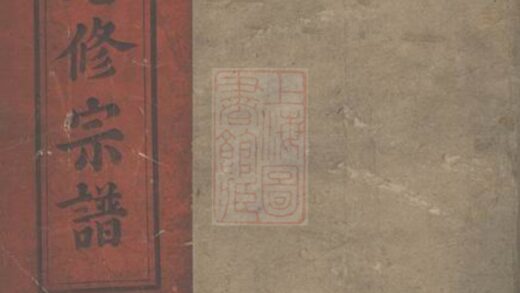 修宗譜
上海圖
書館藏